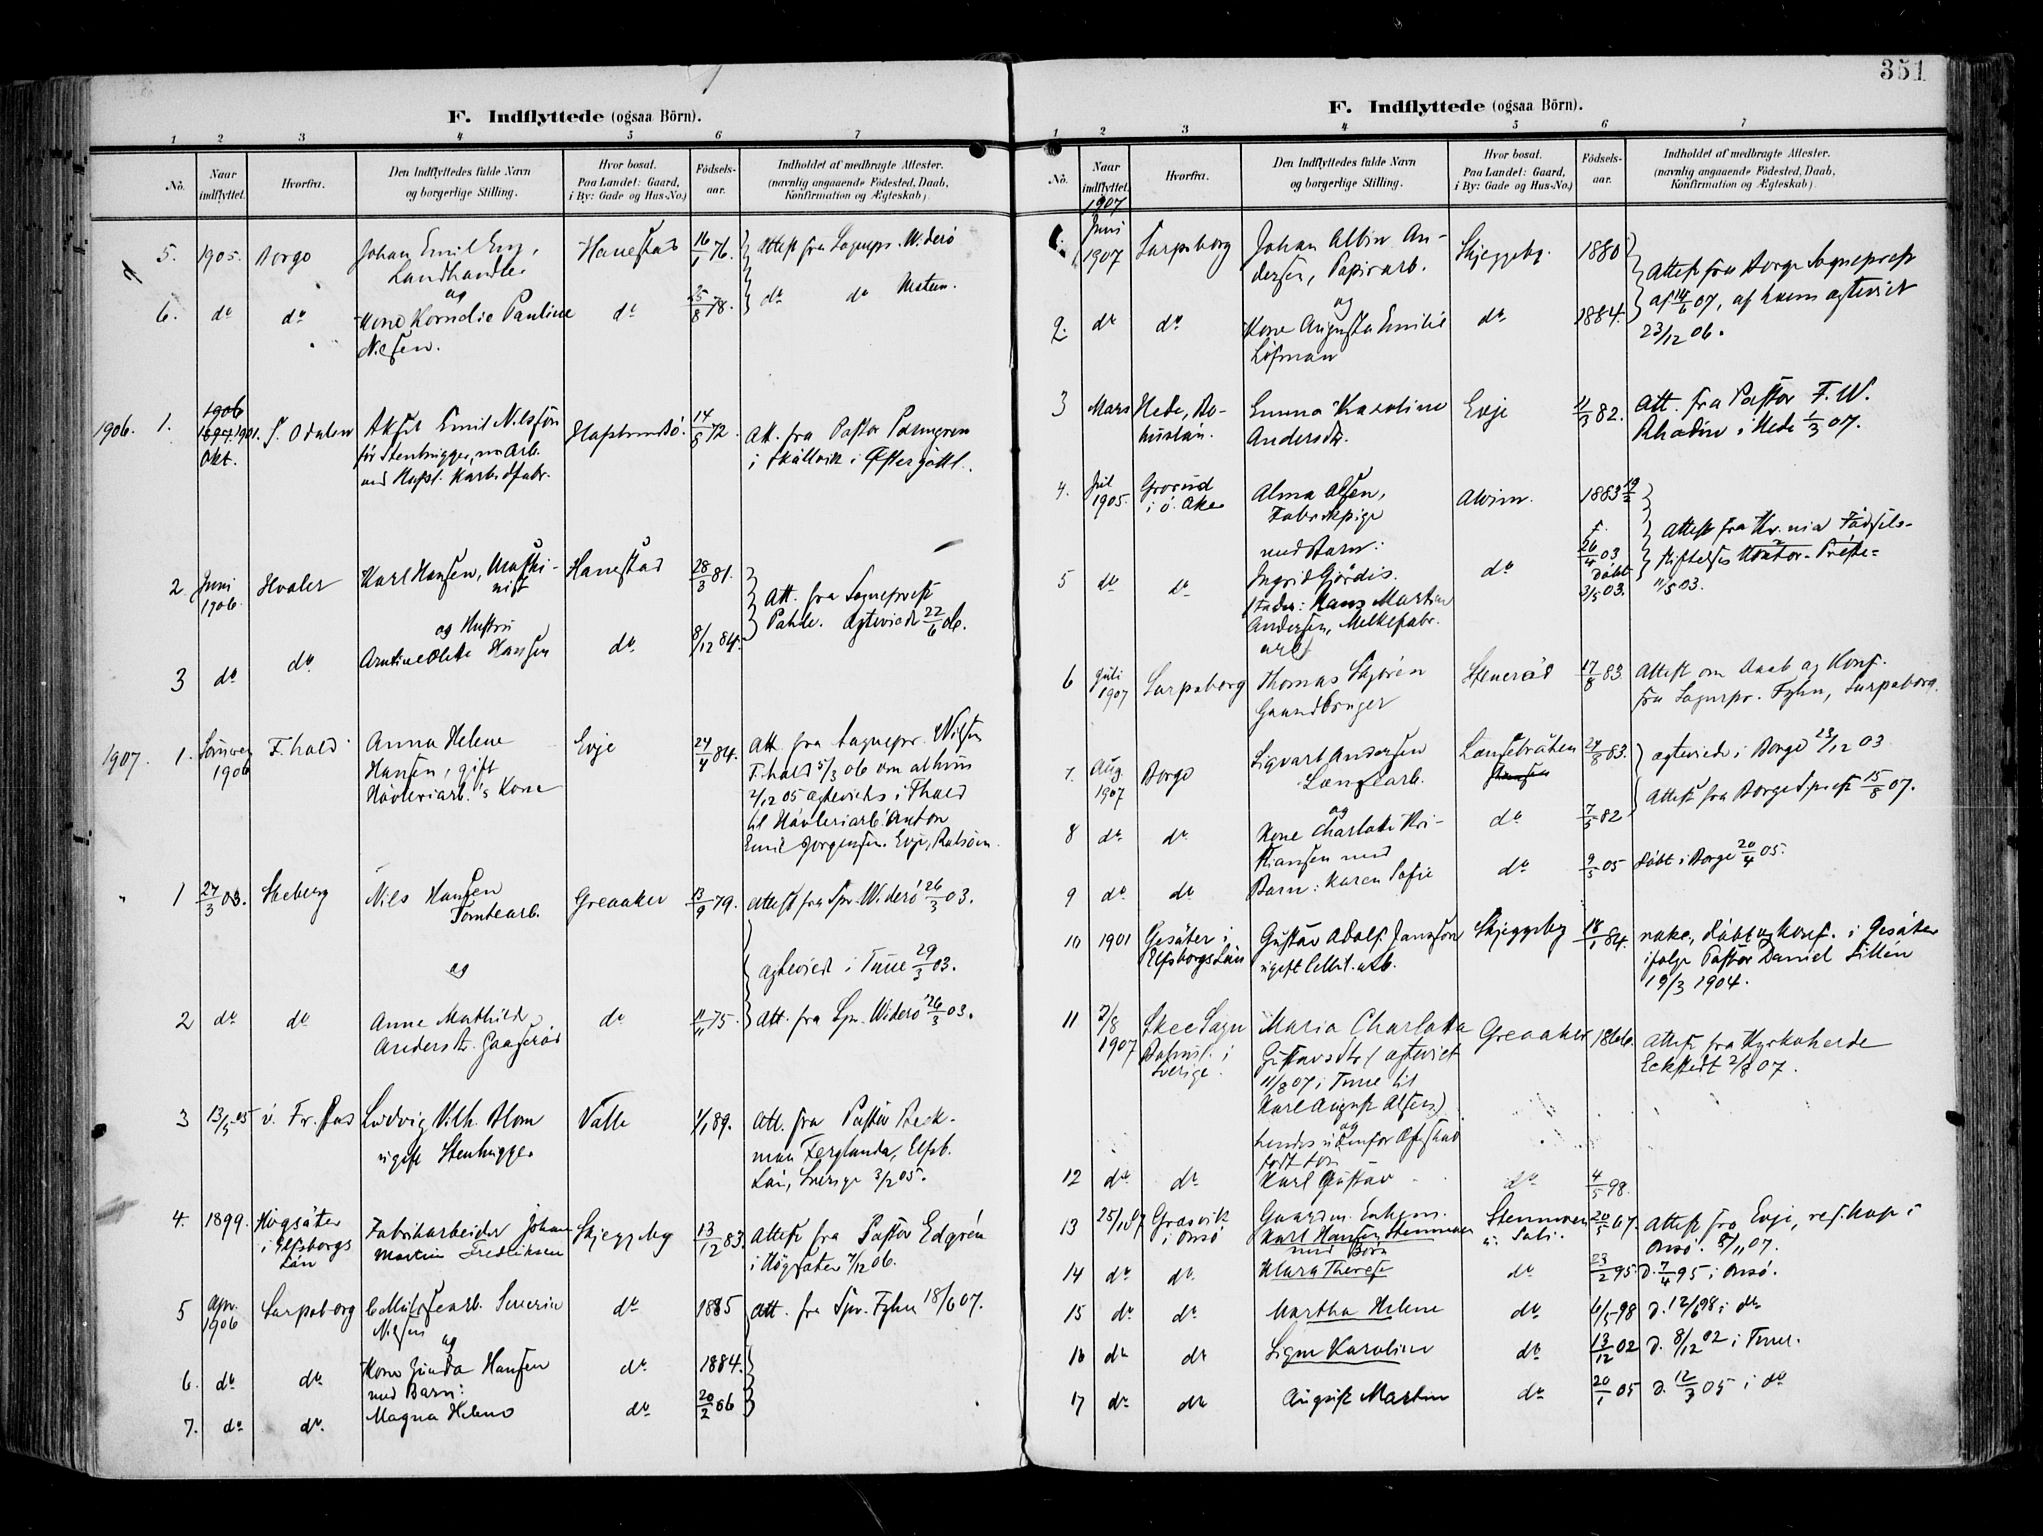 351
F. Indflyttede (ogsaa Börn).
1 2 3 4 5 6 7
No. Naar indflyttet. Hvorfra. Den Indflyttedes fulde Navn og borgerlige Stilling. Hvor bosat. Paa Landet: Gaard, i By: Gade og Hus-No.) Fødselsaar. Indholdet af medbragte Attester. (navnlig angaaende Fødested, Daab, Konfirmation og Ægteskab).
5. 1905. Borge Johan Emil Eng, Hanestad 16/1 76. Attest fra Sognepr. Widerö
Landhandler
og
6. do do Kone Kornelie Pauline do 25/8 78. do do
Nilsen.
1906. 1. 1906
1897. 1901. S. Odalen Aksel Emil Nilsson Hafslundsö. 14/8 72. Att. fra Pastor Palmgren
Okt. för Stenhugger, nu Arb. i Skällvik i Östergötl.
ved Hafsl. Karbidfabr.
2 Juni 1906 Hvaler Karl Hansen, Maskinist Hanestad 28/3 81. Att. fra Sogneprest
og Hustru Pahle. Ægteviede 22/6 06.
3 do do Arntine Olette Hansen do 8/12 84.
1907. 1. 1906 F.hald Anna Helene Evje 24/4 84. Att. fra Sognepr. Nilsen
Hansen, gift F.hald 5/3 06 om at hun
Høvleriarb.'s Kone 2/12 05 ægteviedes i F.hald
til Høvleriarb. Anton
Emil Jørgensen. Evje,
1 24/3 03. Skeberg Nils Hansen Greaaker 13/9 79. Attest fra Spr. Widerö 26/3 03.
Tomtearb.
og ægteviede i Tune 29/3 03.
2 do do Anne Mathilde do 11/11 75. Att. fra Spr. Widerö 26/3 03.
Andersd.
3 13/5 05 Ludvig Vilh. Blom Valle 1/1 89. Att. fra Pastor Beckman
ugift Stenhugger Ferglanda, Elfsb.
Län, Sverige 3/2 05.
4. 1899. Högsäter Fabrikarbeider Johan Skjeggeby 13/12 83. Attest fra Pastor Edgrén
i Elfsborgs Martin Fredriksen i Högsäter 7/12 06.
Län
5 Apr. 1906 Sarpsborg Cellulosearb. Severin do 1885 Att. fra Spr. Fyhn 18/6 07.
Nilsen og
6. do do Kone Hansen do 1884.
med Barn:
7. do do Magna Helene do 20/2 06
F. Indflyttede (ogsaa Börn).
1 2 3 4 5 6 7
No. Naar indflyttet. Hvorfra. Den Indflyttedes fulde Navn og borgerlige Stilling. Hvor bosat. Paa Landet: Gaard, i By: Gade og Hus-No.) Fødselsaar. Indholdet af medbragte Attester. (navnlig angaaende Fødested, Daab, Konfirmation og Ægteskab).
1907
1. Juni 1907 Sarpsborg Johan Albin Andersen, Papirarb. Skjeggeby. 1880 Attest fra Borge Sogneprest
og af 14/6 07, af hvem ægteviet
2. do do Kone Augusta Emilie do 1884. 23/12 06.
Löfman
3 Mars Hede, Bohuslän. Emma Karoline Evje 11/3 82. Att. fra Pastor F. W.
Andersdtr. Rhodin i Hede 1/3 07.
4. Juli 1905. Grorud i Ö. Aker Alma Olsen, Alvim. 1883 19/2
Fabrikpige Attest fra Kr.nia Födsels-
med Barn: f. 26/4 03 stiftelses
5 do do Ingrid Gjördis. do döbt 3/5 03. 11/5 03.
(Fader: Hans Martin
Andersen, Melkefabr.
arb.
6 Juli 1907 Sarpsborg Thomas Skjören Stenerød 17/8 83. Attest om Daab og Konf.
Gaardbruger fra Sognepr. Fyhn, Sarpsborg.
7. Aug. 1907 Borge Sigvart Andersen Landsebråten 24/8 83. ægteviede i Borge 23/12 03
Lænsearb.
og Attest fra Borge Sprest 15/8 07.
8 do do Kone Charlotte Kristiansen med do 7/5 82
9 do do Barn: Karen Sofie do 9/5 05 Döbt i Borge 20/4 05.
10 1901 Gesäter i Gustav Adolf Jansson Skjeggeby 18/1 84. vakc., döbt og konf. i Gesäter
Elfsborgs Län ugift Cellul. arb. ifölge Pastor Daniel Sillén
19/3 1904.
11 2/8 1907 Skee Sogn Maria Charlotta Greaaker 1866. Attest fra Kyrkoherde
Bohusl. i Gustavsdtr. (ægteviet Eckstedt 2/8 07.
Sverige. 11/8 07 i Tune til
Karl August Olsen)
og
hendes udenfor Ægteskab
född sön
12 do do Karl Gustav do 4/5 98.
13 25/10 07 Græsvik Gaardm. Enkem. Stenmoen 20/5 67. Attest fra Evje, res. kap i
i Onsö Karl Hansen Stenmoen Onsö. 8/11 07.
med Börn
14 do do Klara Therese do 23/2 95. D. 7/4 95 i Onsö.
15 do do Martha Helene do 6/5 98 D. 12/6 98 i do
16 do do Signe Karoline do 13/12 02 D. 8/12 02 i Tune.
17 do do August Martin do 20/1 05 D. 12/3 05 i do